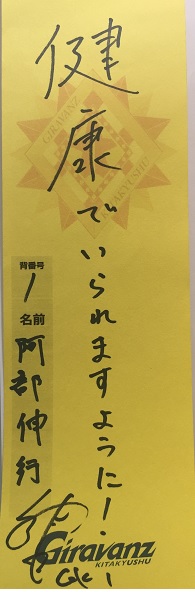 健康でいられますように!
背番号
1
名前
阿部伸行
GIRAVANZ
KITAKYUSHU
Giravanz
KITAKYUSHU